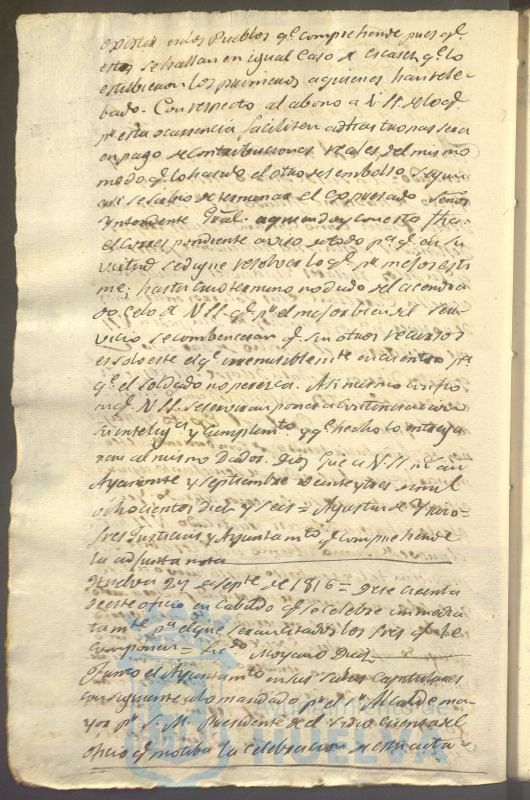 existir en los Pueblos q.e comprehende pues q.e
estos se hallan en igual caso de escases q.e lo
estubieron los primeros a quienes han rele-
bado. Con respecto al abono a V.SS. de lo q.e
p.r esta ocurrencia faciliten a otras tropas sera
en pago de Contribuciones reales del mismo
modo q.e lo ha sido el otro desembolso segun
se sirbio determinar el expresado Señor
Yntendente Gral. a quien doy con esta fha.
el correspondiente aviso de todo p.a q.e en su
virtud se digne resolver lo q.e p.r mejor esti-
me; hasta cuio termino no dudo del acendra-
do Celo de V.SS. q.e p.r el mejor bien del Ser-
vicio se combenceran q.e sin otros recursos
es solo este el q.e irremisiblem.te encuentro p.a
q.e el soldado no peresca. Asi mismo confio
en q.e V.SS. se serviran poner a continuacion
su intelig.a y cumplim.to y q.e hecho lo entrega-
ran al mismo Dador. Dios gue a V.SS. m.s an.s
Ayamonte y Septiembre veinte y tres de mil
ochocientos Diez y seis = Agustin de =
Sres Justicias y Ayuntam.tos q.e comprehende
la adjunta nota
Huelva 27 de Sept.e de 1816 = Dese cuenta
de este oficio en Cabildo q.e se celebre inmedia-
tam.te p.a el que seran citados los Sres q.e le
componen = Lic.do Moyano Diaz
Junto el Ayuntam.to en sus Salas Capitulares
consiguiente a lo mandado p.r el S.r Alcalde ma-
yor p.r S. M. Presidente de el se dio cuenta del
oficio q.e motiba la celebracion de este acta
Ayuntamiento de
HUELVA